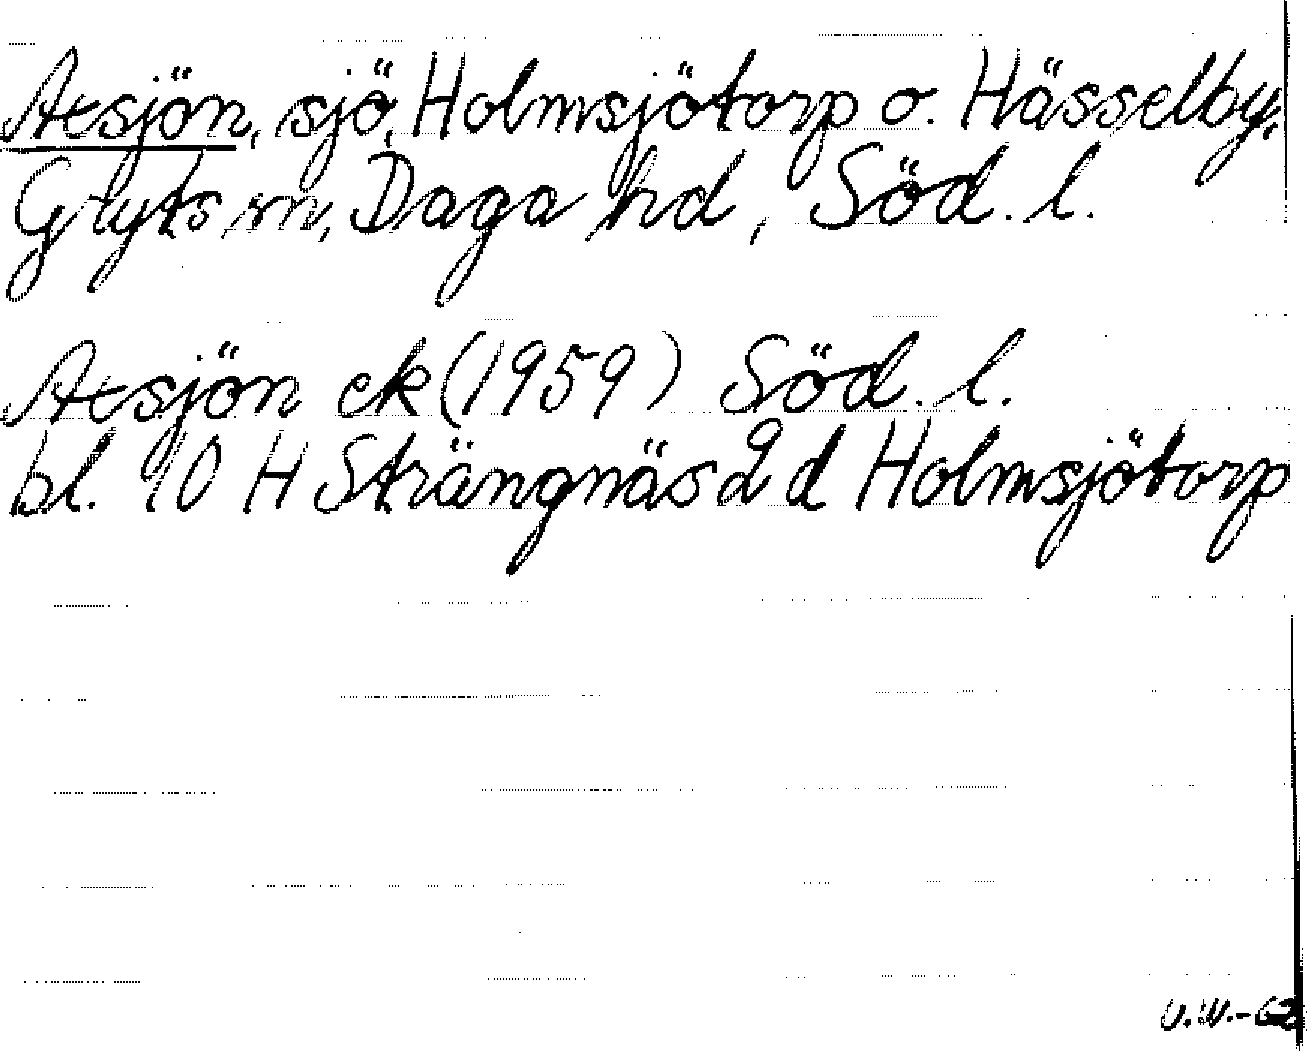 Atsjön, sjö, Holmsjötorp o. Hässelby,
Gryts sn, Daga hd, Söd. l.
Atsjön ek (1959) Söd. l.
bl. 10 H Strängnäs 2 d Holmsjötorp